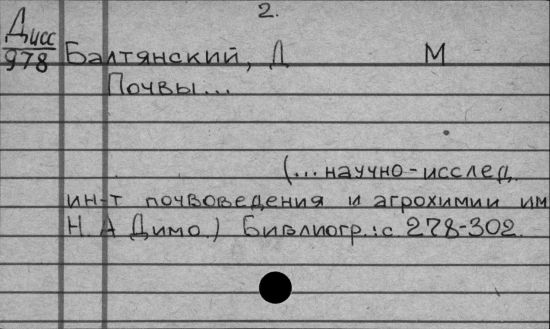 2.
Дисс
978
Балтянский, Д М
Почвы...
(... научно-исслед.
ин-т почвоведения и агрохимии им
Н. А Димо.) Библиогр.: с 278-302.